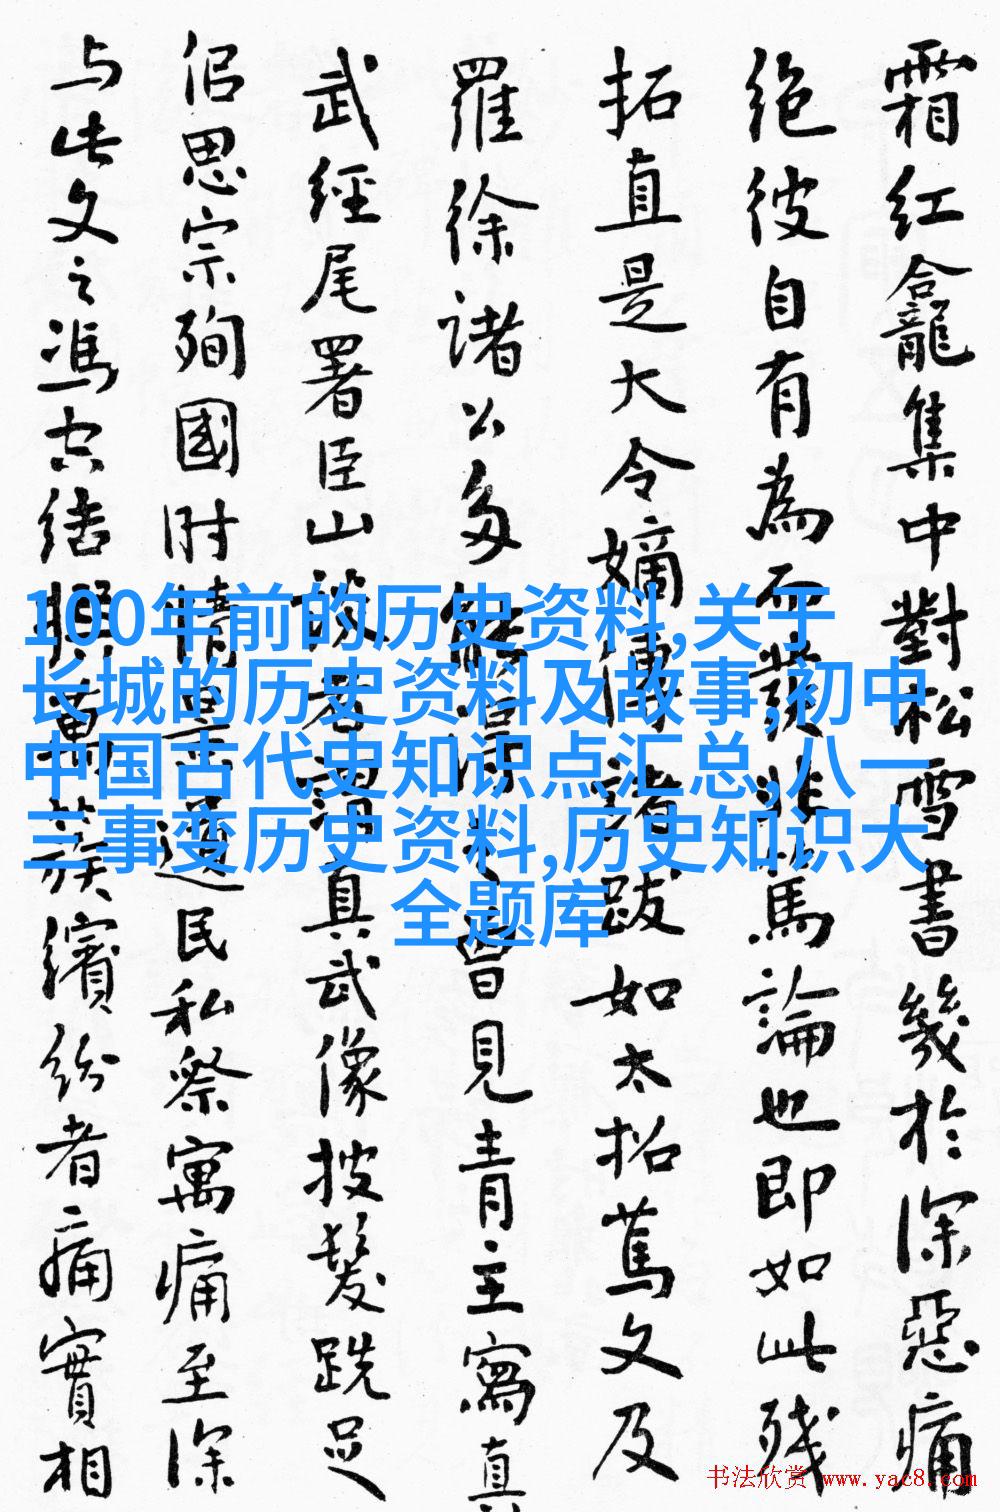 霜红龕龍集中對松雪書幾於深惡痛
绝彼自有為而發非篤論也即如此残
拓直是大令嫡傳諸跋如太拓蔦文及
羅徐諸公多能曾見青主寫真
武經尾署臣山真武像披髮跣足
侣思宗殉國时遺民私祭寓痛至深
与此文之馮缤纷者痛實相
100年前的历史资料,关于
长城的历史资料及故事,初中
中国古代史知识点汇总,八一
三事变历史资料,历史知识大
全题库
书法欣赏 www.yac8.com